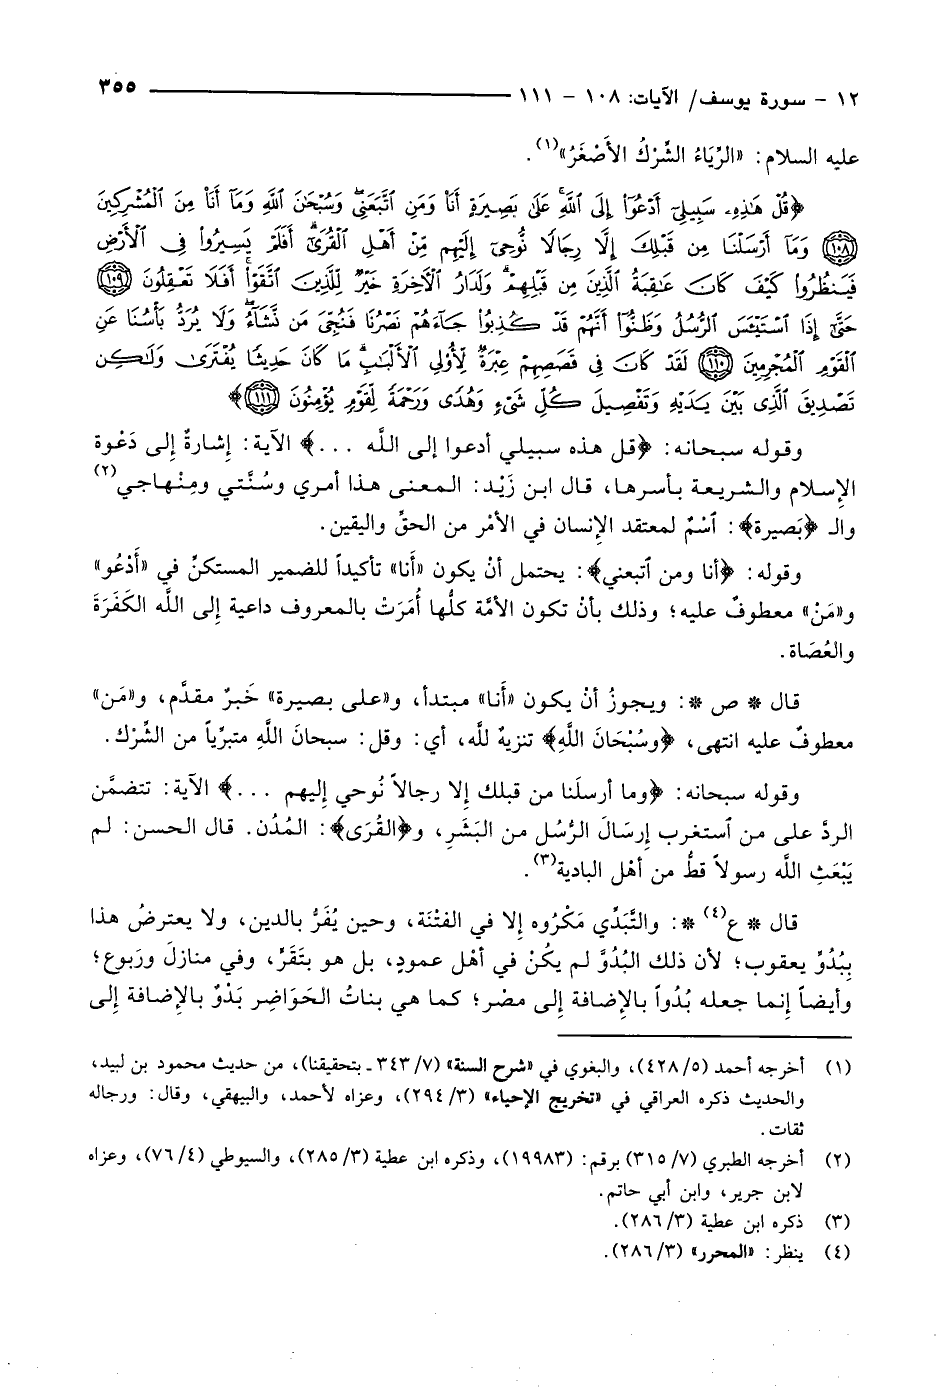 ١٢ - سورة يوسف/ الآيات: ١٠٨ - ١١١ ٣٥٥
عليه السلام: «الرِّيَاءُ الشِّرْكُ الأَصْغَرُ»(١).
﴿قُلْ هَٰذِهِۦ سَبِيلِيٓ أَدْعُوٓا۟ إِلَى ٱللَّهِ ۚ عَلَىٰ بَصِيرَةٍ أَنَا۠ وَمَنِ ٱتَّبَعَنِي ۖ وَسُبْحَٰنَ ٱللَّهِ وَمَآ أَنَا۠ مِنَ ٱلْمُشْرِكِينَ
﴿١٠٨﴾ وَمَآ أَرْسَلْنَا مِن قَبْلِكَ إِلَّا رِجَالًا نُّوحِىٓ إِلَيْهِم مِّنْ أَهْلِ ٱلْقُرَىٰٓ ۗ أَفَلَمْ يَسِيرُوا۟ فِى ٱلْأَرْضِ
فَيَنظُرُوا۟ كَيْفَ كَانَ عَٰقِبَةُ ٱلَّذِينَ مِن قَبْلِهِمْ ۗ وَلَدَارُ ٱلْـَٔاخِرَةِ خَيْرٌ لِّلَّذِينَ ٱتَّقَوْا۟ ۗ أَفَلَا تَعْقِلُونَ ﴿١٠٩﴾
حَتَّىٰٓ إِذَا ٱسْتَيْـَٔسَ ٱلرُّسُلُ وَظَنُّوٓا۟ أَنَّهُمْ قَدْ كُذِبُوا۟ جَآءَهُمْ نَصْرُنَا فَنُجِّىَ مَن نَّشَآءُ ۖ وَلَا يُرَدُّ بَأْسُنَا عَنِ
ٱلْقَوْمِ ٱلْمُجْرِمِينَ ﴿١١٠﴾ لَقَدْ كَانَ فِى قَصَصِهِمْ عِبْرَةٌ لِّأُو۟لِى ٱلْأَلْبَٰبِ ۗ مَا كَانَ حَدِيثًا يُفْتَرَىٰ وَلَٰكِن
تَصْدِيقَ ٱلَّذِى بَيْنَ يَدَيْهِ وَتَفْصِيلَ كُلِّ شَىْءٍ وَهُدًى وَرَحْمَةً لِّقَوْمٍ يُؤْمِنُونَ ﴿١١١﴾﴾
وقوله سبحانه: ﴿قل هذه سبيلي أدعوا إلى اللَّه ...﴾ الآية: إِشارةٌ إِلى دَعْوة
الإِسلام والشريعة بأسرها، قال ابن زَيْد: المعنى هذا أمري وسُنَّتي ومِنْهاجي(٢)
والـ ﴿بَصيرة﴾: ٱسْمٌ لمعتقد الإِنسان في الأمْر من الحقِّ واليقين.
وقوله: ﴿أنا ومن ٱتبعني﴾: يحتمل أنْ يكون «أَنا» تأكيداً للضمير المستكنِّ في «أَدْعُو»
و«مَنْ» معطوفٌ عليه؛ وذلك بأنْ تكون الأمَّة كلُّها أُمَرَتْ بالمعروف داعية إِلى اللَّه الكَفَرَةَ
والعُصَاة.
قال * ص *: ويجوزُ أنْ يكون «أَنا» مبتدأ، و«على بصيرة» خَبرٌ مقدَّم، و«مَن»
معطوفٌ عليه انتهى، ﴿وسُبْحَانَ اللَّهِ﴾ تنزيهٌ للَّه، أي: وقل: سبحانَ اللَّهِ متبرِّياً من الشِّرْك.
وقوله سبحانه: ﴿وما أرسلَنا من قبلك إِلا رجالاً نُوحي إِليهم ...﴾ الآية: تتضمَّن
الردَّ على من ٱستغرب إِرسَالَ الرُّسُل من البَشَرِ، و﴿القُرَى﴾: المُدُن. قال الحسن: لم
يَبْعَثِ اللَّه رسولاً قطُّ من أهْل البادية(٣).
قال * ع(٤) *: والتَّبَدِّي مَكْرُوه إِلا في الفتْنَة، وحين يُفَرُّ بالدين، ولا يعترضُ هذا
بِبُدُوِّ يعقوب؛ لأن ذلك البُدُوَّ لم يكُنْ في أهْل عمودٍ، بل هو بتَقَرٍّ، وفي منازلَ ورَبوع؛
وأيضاً إِنما جعله بُدُواً بالإِضافة إِلى مصْر؛ كما هي بناتُ الحَوَاضِر بَدْوٌ بالإِضافة إِلى
(١) أخرجه أحمد (٤٢٨/٥)، والبغوي في «شرح السنة» (٣٤٣/٧ ـ بتحقيقنا)، من حديث محمود بن لبيد،
والحديث ذكره العراقي في «تخريج الإحياء» (٢٩٤/٣)، وعزاه لأحمد، والبيهقي، وقال: ورجاله
ثقات.
(٢) أخرجه الطبري (٣١٥/٧) برقم: (١٩٩٨٣)، وذكره ابن عطية (٢٨٥/٣)، والسيوطي (٧٦/٤)، وعزاه
لابن جرير، وابن أبي حاتم.
(٣) ذكره ابن عطية (٢٨٦/٣).
(٤) ينظر: «المحرر» (٢٨٦/٣).